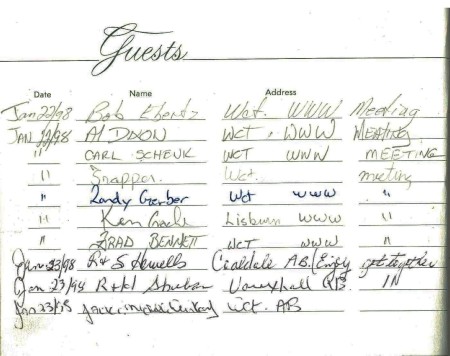 Guests
Date Name Address
Jan 22/98 Bob Ebertz Wct. WWW Meeting
JAN 22/98 Al DIXON WCT. WWW MEETING
" CARL SCHENK WCT WWW MEETING
" Snapper Wct. meeting
" Randy Gerber Wct WWW "
" Ken Lisburn WWW "
" BRAD BENNETT WCT WWW "
Jan 23/98 R & S Howells Coaldale AB. (Enjoy get together
Jan 23/98 Vauxhall AB. IN
Jan 23/98 Wct. AB